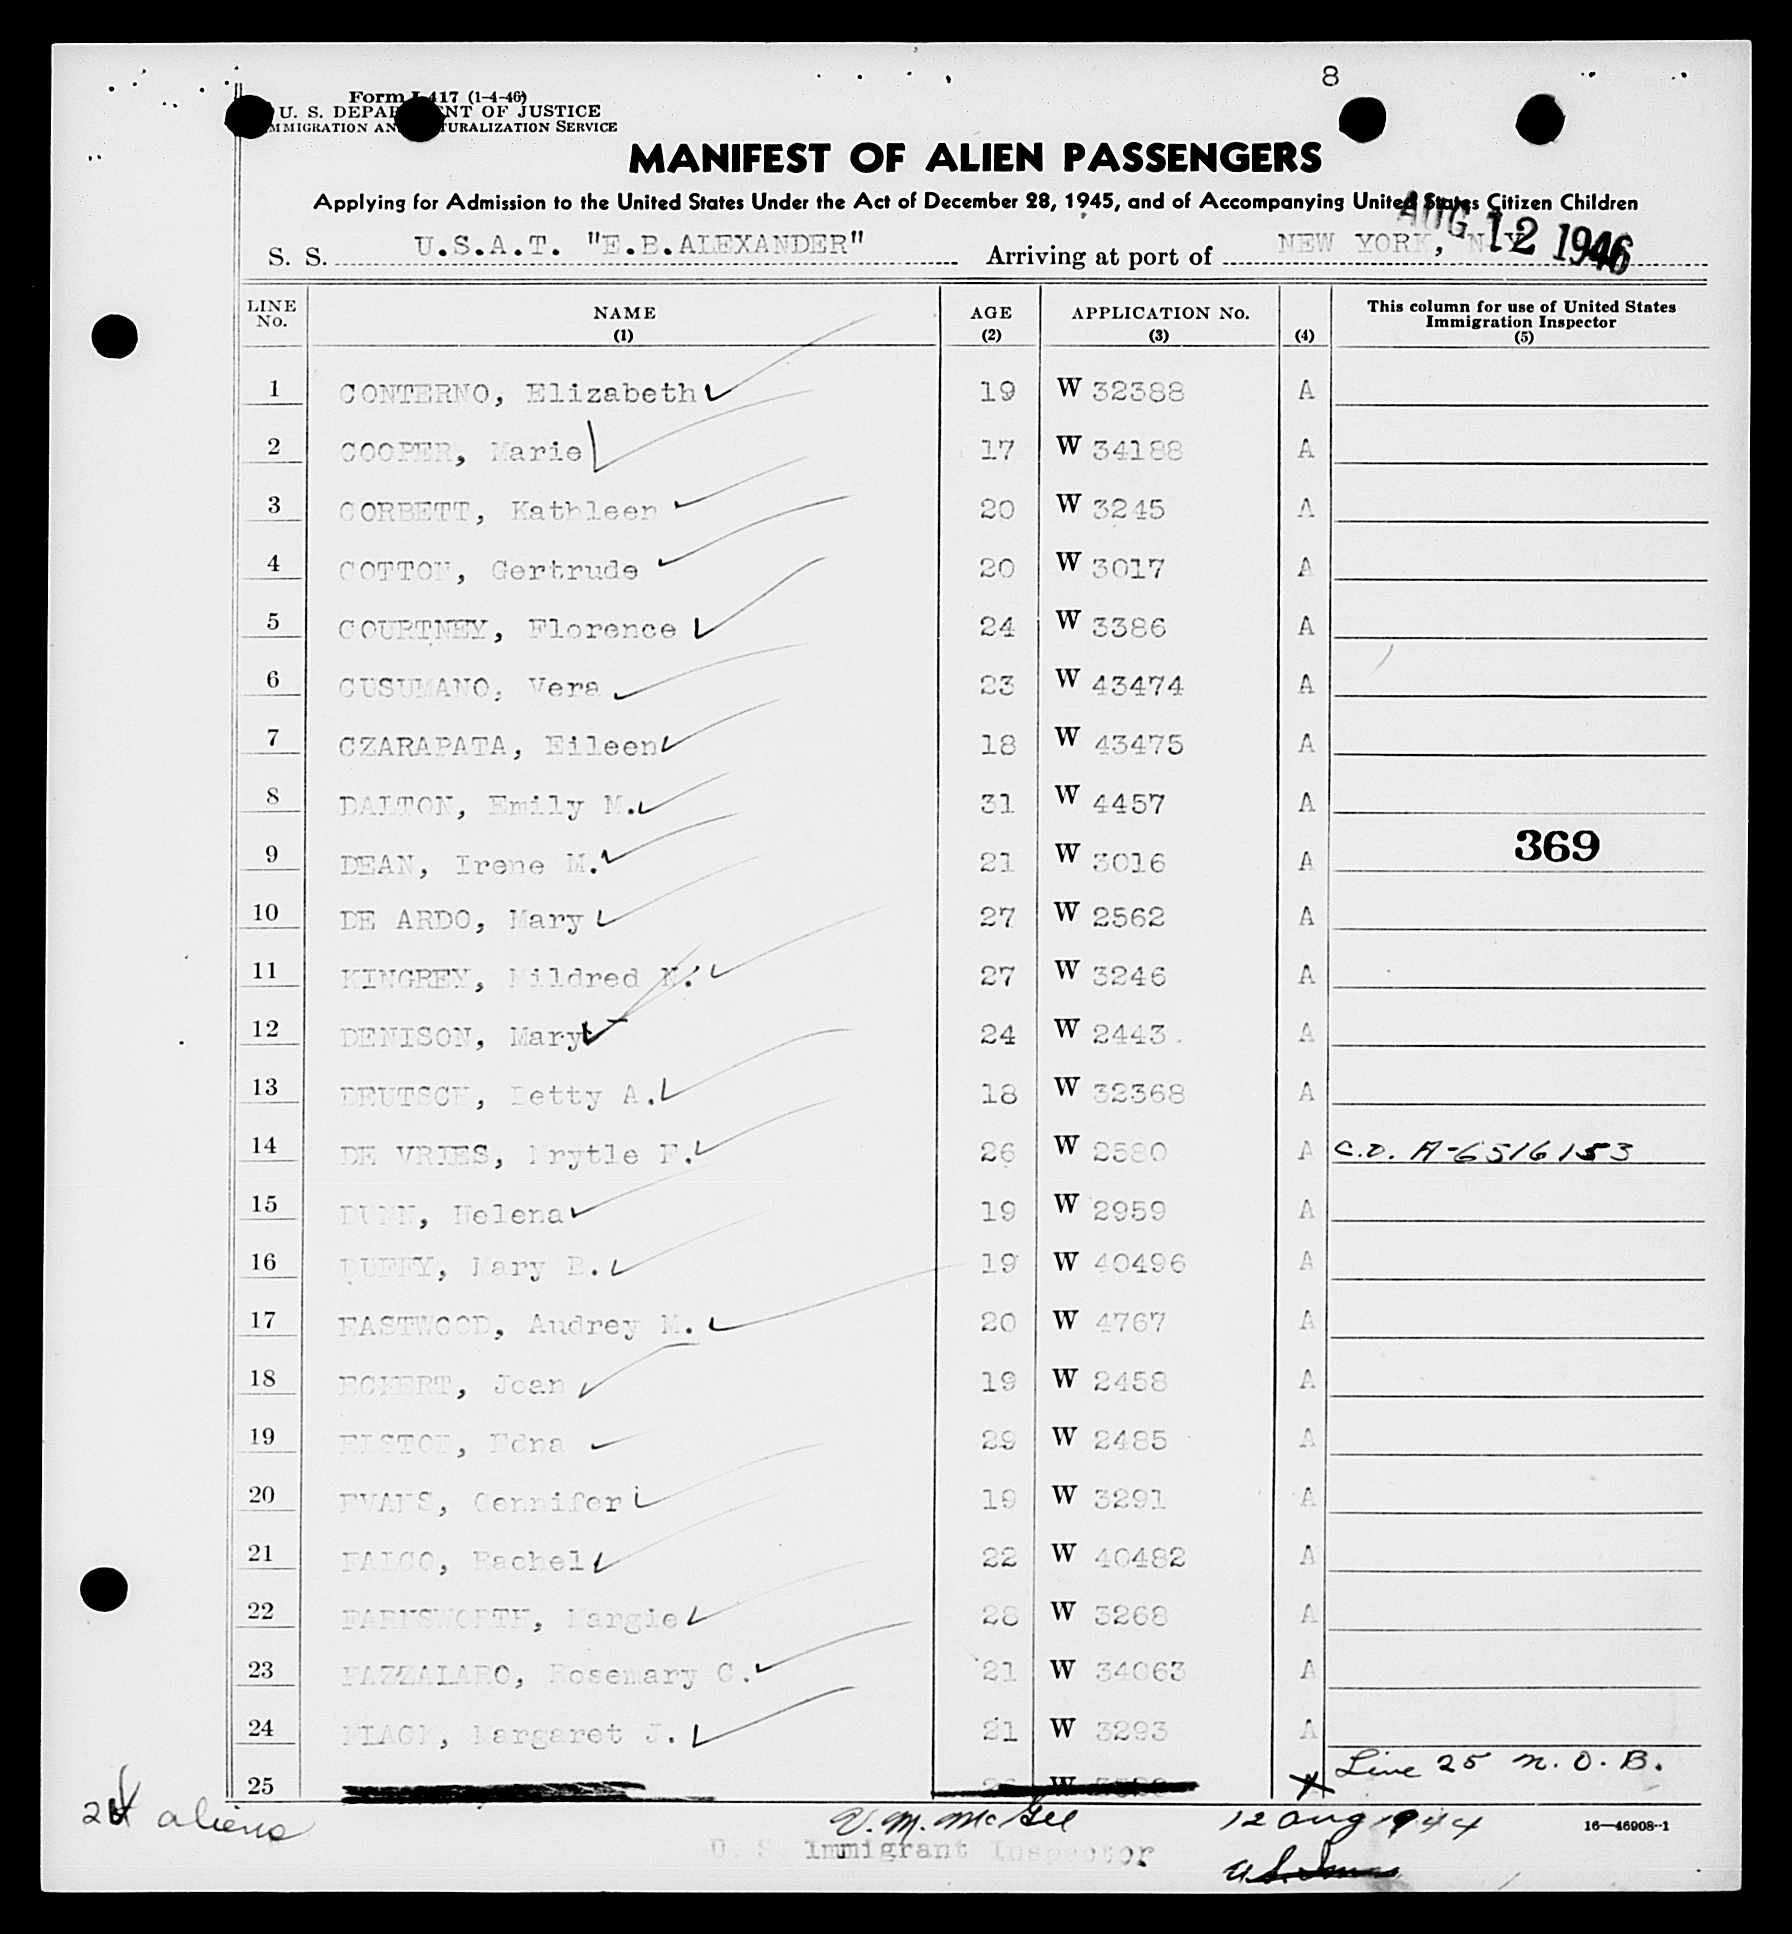 8
Form I-417 (1-4-46)
U. S. DEPARTMENT OF JUSTICE
IMMIGRATION AND NATURALIZATION SERVICE
MANIFEST OF ALIEN PASSENGERS
Applying for Admission to the United States Under the Act of December 28, 1945, and of Accompanying United States Citizen Children
AUG 12 1946
S. S. U.S.A.T. "E.B.ALEXANDER" Arriving at port of NEW YORK, N.Y.
LINE No. NAME (1) AGE (2) APPLICATION No. (3) (4) This column for use of United States Immigration Inspector (5)
1 CONTERNO, Elizabeth 19 W 32388 A
2 COOPER, Marie 17 W 34188 A
3 CORBETT, Kathleen 20 W 3245 A
4 COTTON, Gertrude 20 W 3017 A
5 COURTNEY, Florence 24 W 3386 A
6 CUSUMANO, Vera 23 W 43474 A
7 CZARAPATA, Eileen 18 W 43475 A
8 DALTON, Emily M. 31 W 4457 A
369
9 DEAN, Irene M. 21 W 3016 A
10 DE ARDO, Mary 27 W 2562 A
11 KINGREY, Mildred K. 27 W 3246 A
12 DENISON, Mary 24 W 2443 A
13 DEUTSCH, Betty A. 18 W 32368 A
14 DE VRIES, Mrytle F. 26 W 2580 A C.O. A-6516153
15 DUNN, Helena 19 W 2959 A
16 DUFFY, Mary B. 19 W 40496 A
17 EASTWOOD, Audrey M. 20 W 4767 A
18 ECKERT, Joan 19 W 2458 A
19 ELSTON, Edna 29 W 2485 A
20 EVANS, Gennifer 19 W 3291 A
21 FALCO, Rachel 22 W 40482 A
22 FARNSWORTH, Margie 28 W 3268 A
23 FAZZALARO, Rosemary C. 21 W 34063 A
24 Margaret J. 21 W 3293 A
25 W Line 25 N.O.B.
24 aliens V. M. McGee 12 Aug 1944 16—46908-1
U. S. Immigrant Inspector